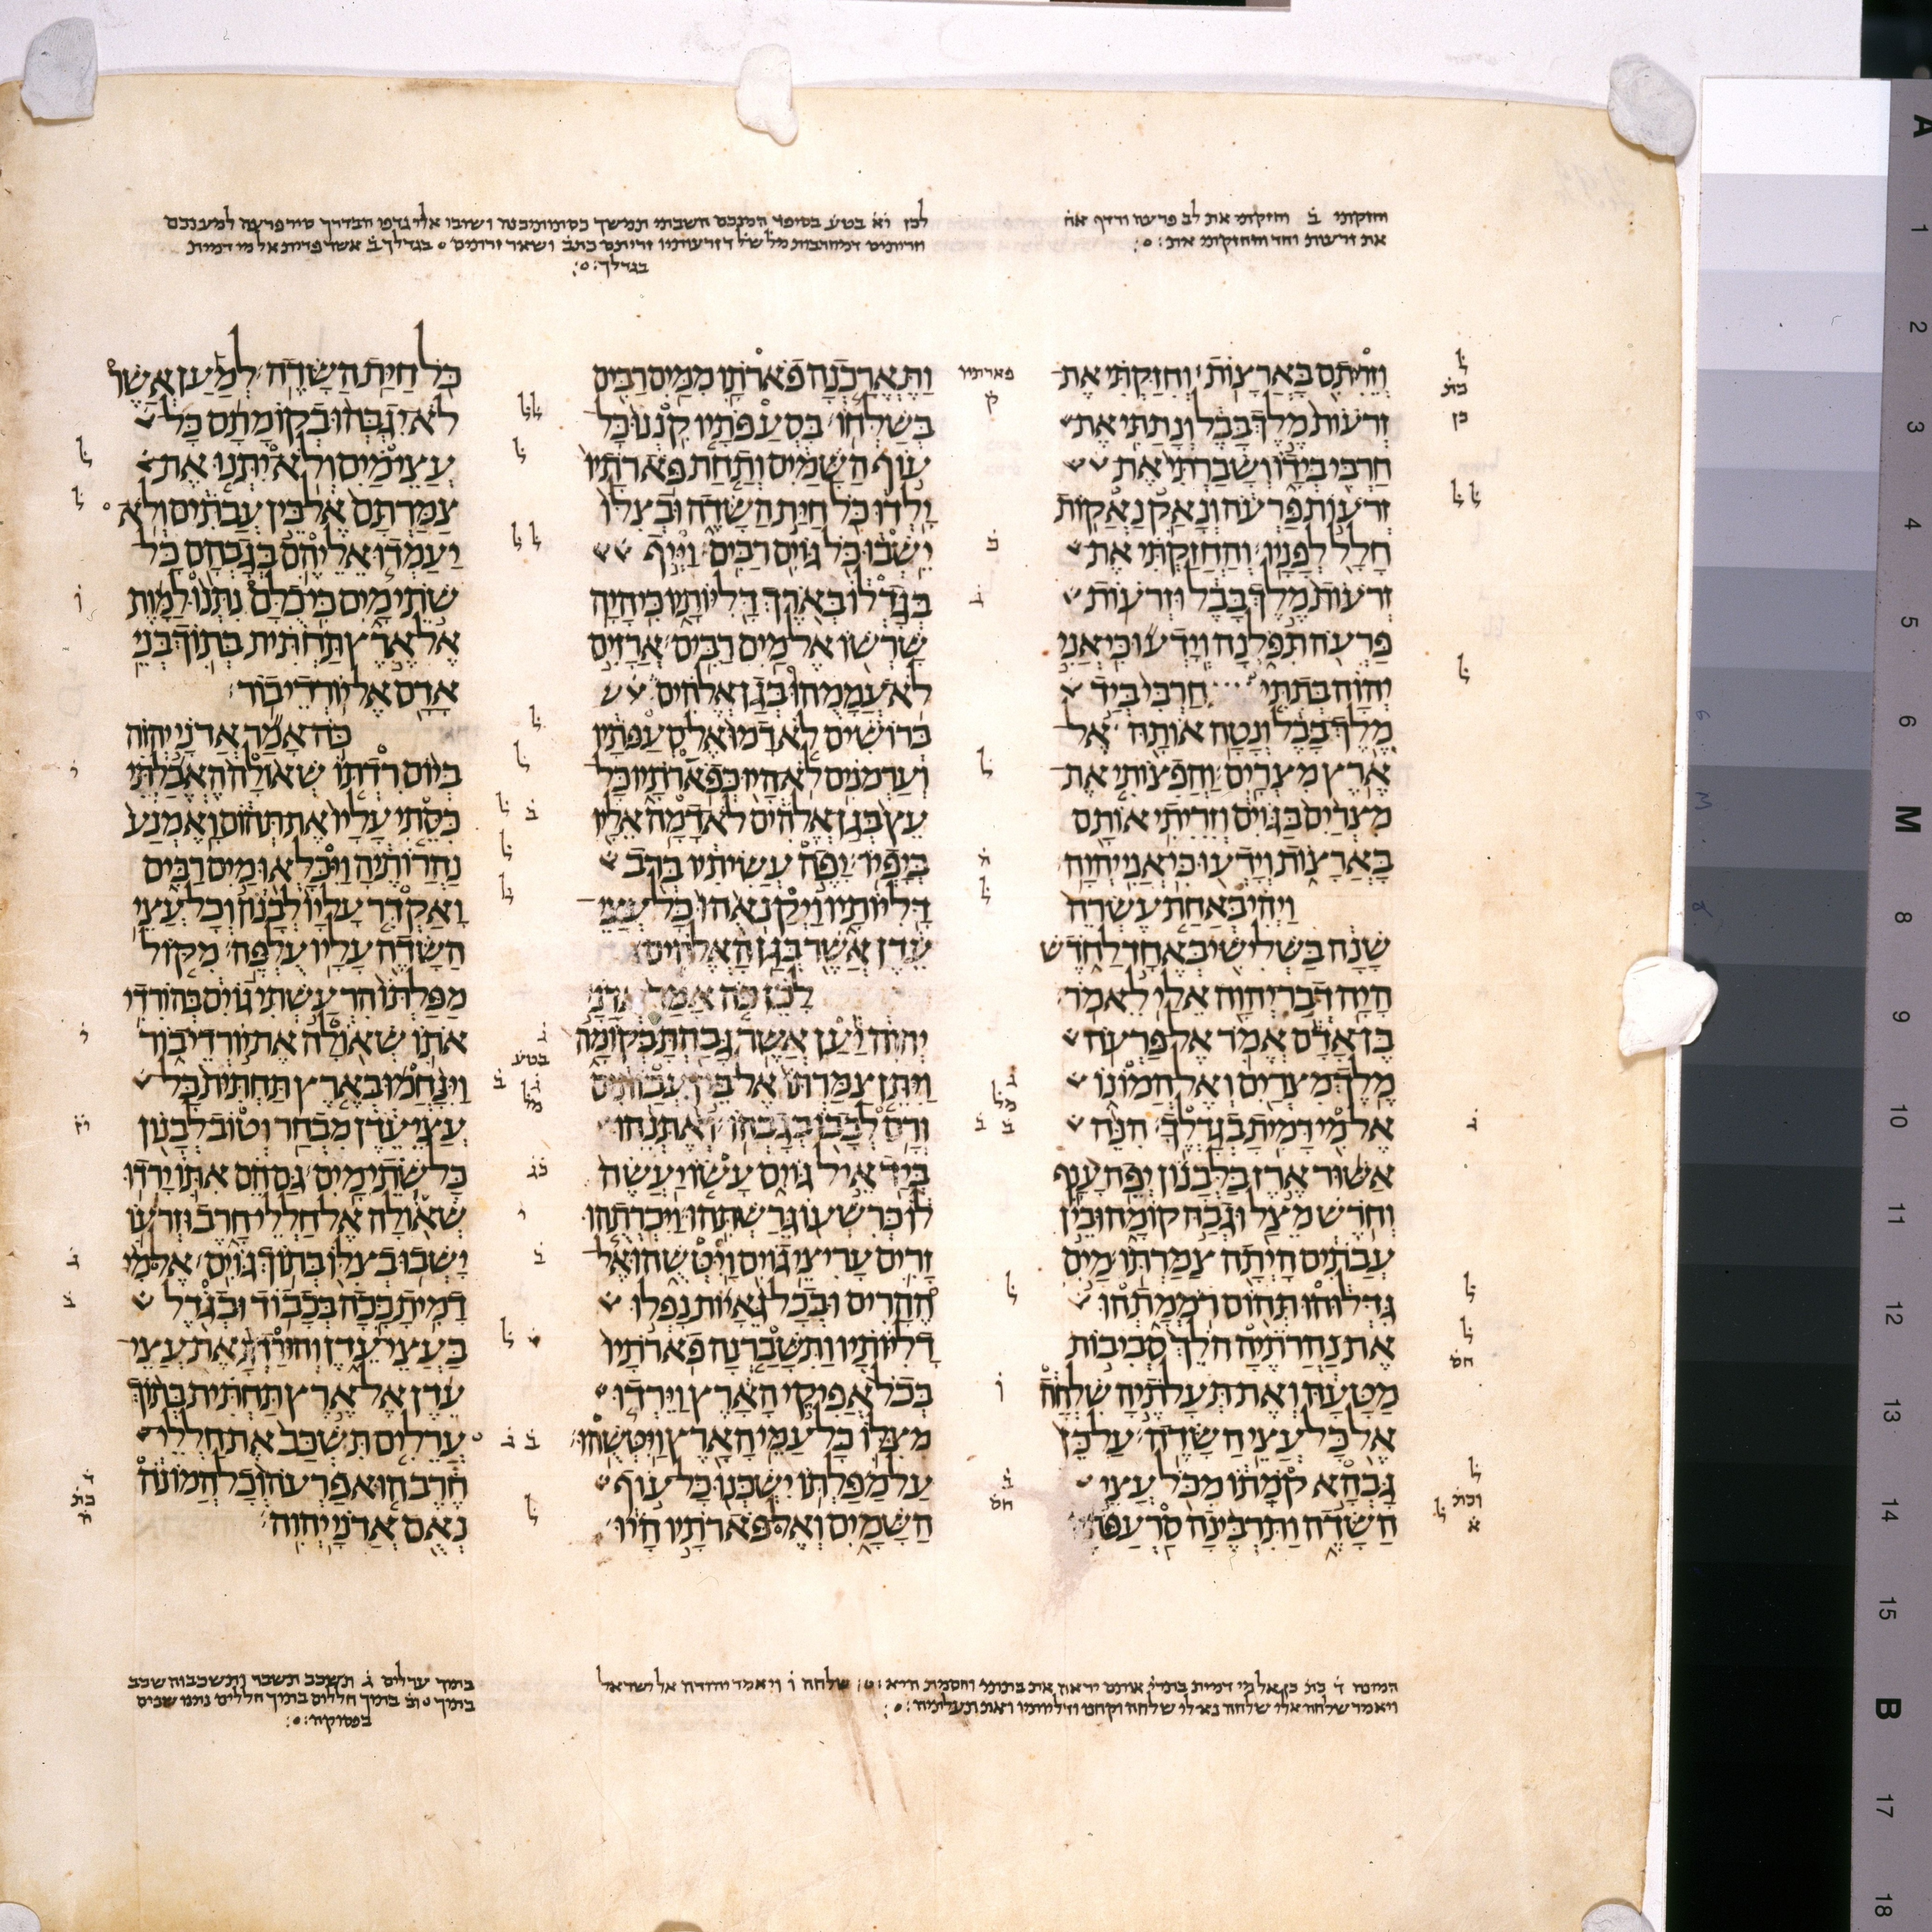 וחזקתי ב וחזקתי את לב פרעה ורדף אח
את זרעות וחד והחזקתי את
וזריתם בארצות וחזקתי את
זרעות מלך בבל ונתתי את
חרבי בידו ושברתי את
זרעות פרעה ונאק נאקות
חלל לפניו והחזקתי את
זרעות מלך בבל וזרעות
פרעה תפלנה וידעו כי אני
יהוה בתתי חרבי ביד
מלך בבל ונטה אותה אל
ארץ מצרים והפצותי את
מצרים בגוים וזריתי אותם
בארצות וידעו כי אני יהוה
ויהי באחת עשרה
שנה בשלישי באחד לחדש
היה דבר יהוה אלי לאמר
בן אדם אמר אל פרעה
מלך מצרים ואל המונו
אל מי דמית בגדלך הנה
אשור ארז בלבנון יפה ענף
וחרש מצל וגבה קומה ובין
עבתים היתה צמרתו מים
גדלוהו תהום רממתהו
את נהרתיה הלך סביבות
מטעה ואת תעלתיה שלחה
אל כל עצי השדה על כן
גבהא קמתו מכל עצי
השדה ותרבינה סרעפתיו
פארתיו
ק
ותארכנה פארתו ממים רבים
בשלחו בסעפתיו קננו כל
עוף השמים ותחת פארתיו
ילדו כל חית השדה ובצלו
ישבו כל גוים רבים וייף
בגדלו בארך דליותיו כי היה
שרשו אל מים רבים ארזים
לא עממהו בגן אלהים
ברושים לא דמו אל סעפתיו
וערמנים לא היו כפארתיו כל
עץ בגן אלהים לא דמה אליו
ביפיו יפה עשיתיו ברב
דליותיו ויקנאהו כל עצי
עדן אשר בגן האלהים
לכן כה אמר אדני
יהוה יען אשר גבהת בקומה
ויתן צמרתו אל בין עבותים
ורם לבבו בגבהו ואתנהו
ביד איל גוים עשו יעשה
לו כרשעו גרשתהו ויכרתהו
זרים עריצי גוים ויטשהו אל
ההרים ובכל גאיות נפלו
דליותיו ותשברנה פארתיו
בכל אפיקי הארץ וירדו
מצלו כל עמי הארץ ויטשהו
על מפלתו ישכנו כל עוף
השמים ואל פארתיו היו
כל חית השדה למען אשר
לא יגבהו בקומתם כל
עצי מים ולא יתנו את
צמרתם אל בין עבתים ולא
יעמדו אליהם בגבהם כל
שתי מים כי כלם נתנו למות
אל ארץ תחתית בתוך בני
אדם אל יורדי בור
כה אמר אדני יהוה
ביום רדתו שאולה האבלתי
כסתי עליו את תהום ואמנע
נהרותיה ויכלאו מים רבים
ואקדר עליו לבנון וכל עצי
השדה עליו עלפה מקול
מפלתו הרעשתי גוים בהורדי
אתו שאולה את יורדי בור
וינחמו בארץ תחתית כל
עצי עדן מבחר וטוב לבנון
כל שתי מים גם הם אתו ירדו
שאולה אל חללי חרב וזרעו
ישבו בצלו בתוך גוים אל מי
דמית ככה בכבוד ובגדל
בעצי עדן והורדת את עצי
עדן אל ארץ תחתית בתוך
ערלים תשכב את חללי
חרב הוא פרעה וכל המונה
נאם אדני יהוה